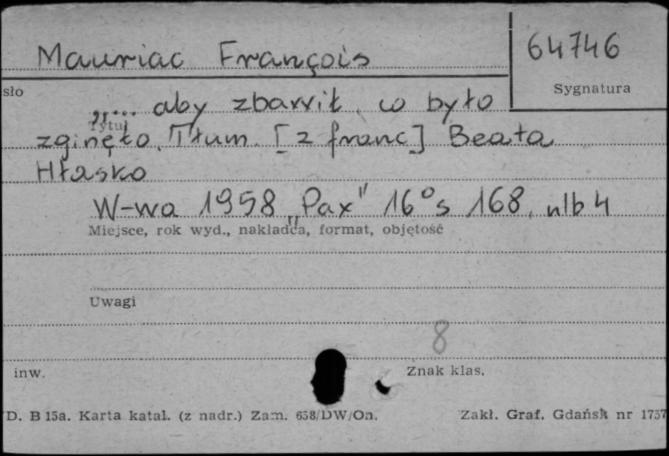 Mauriac François
64746
sło
Sygnatura
„... aby zbawił, co było
Tytuł
zginęło. Tłum. [z franc] Beata
Hłasko
W-wa 1958 „Pax" 16° s 168, nlb 4
Miejsce, rok wyd., nakładca, format, objętość
Uwagi
8
inw.
Znak klas.
D. B 15a. Karta katal. (z nadr.) Zam. 658/DW/On. Zakł. Graf. Gdańsk nr 1737